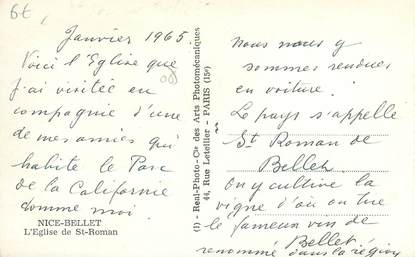 6t
Janvier 1965.
Voici l'Eglise que
j'ai visitée en
compagnie d'une
de mes amies qui
habite le Parc
de la Californie
comme moi.
NICE-BELLET
L'Eglise de St-Roman
(1) - Real-Photo - Cie des Arts Photomécaniques
44, Rue Letellier - PARIS (15e)
Nous nous y
sommes rendues
en voiture.
Le pays s'appelle
St Roman de
Bellet.
On y cultive la
vigne d'où on tire
le fameux vin de
Bellet
renommé dans la région